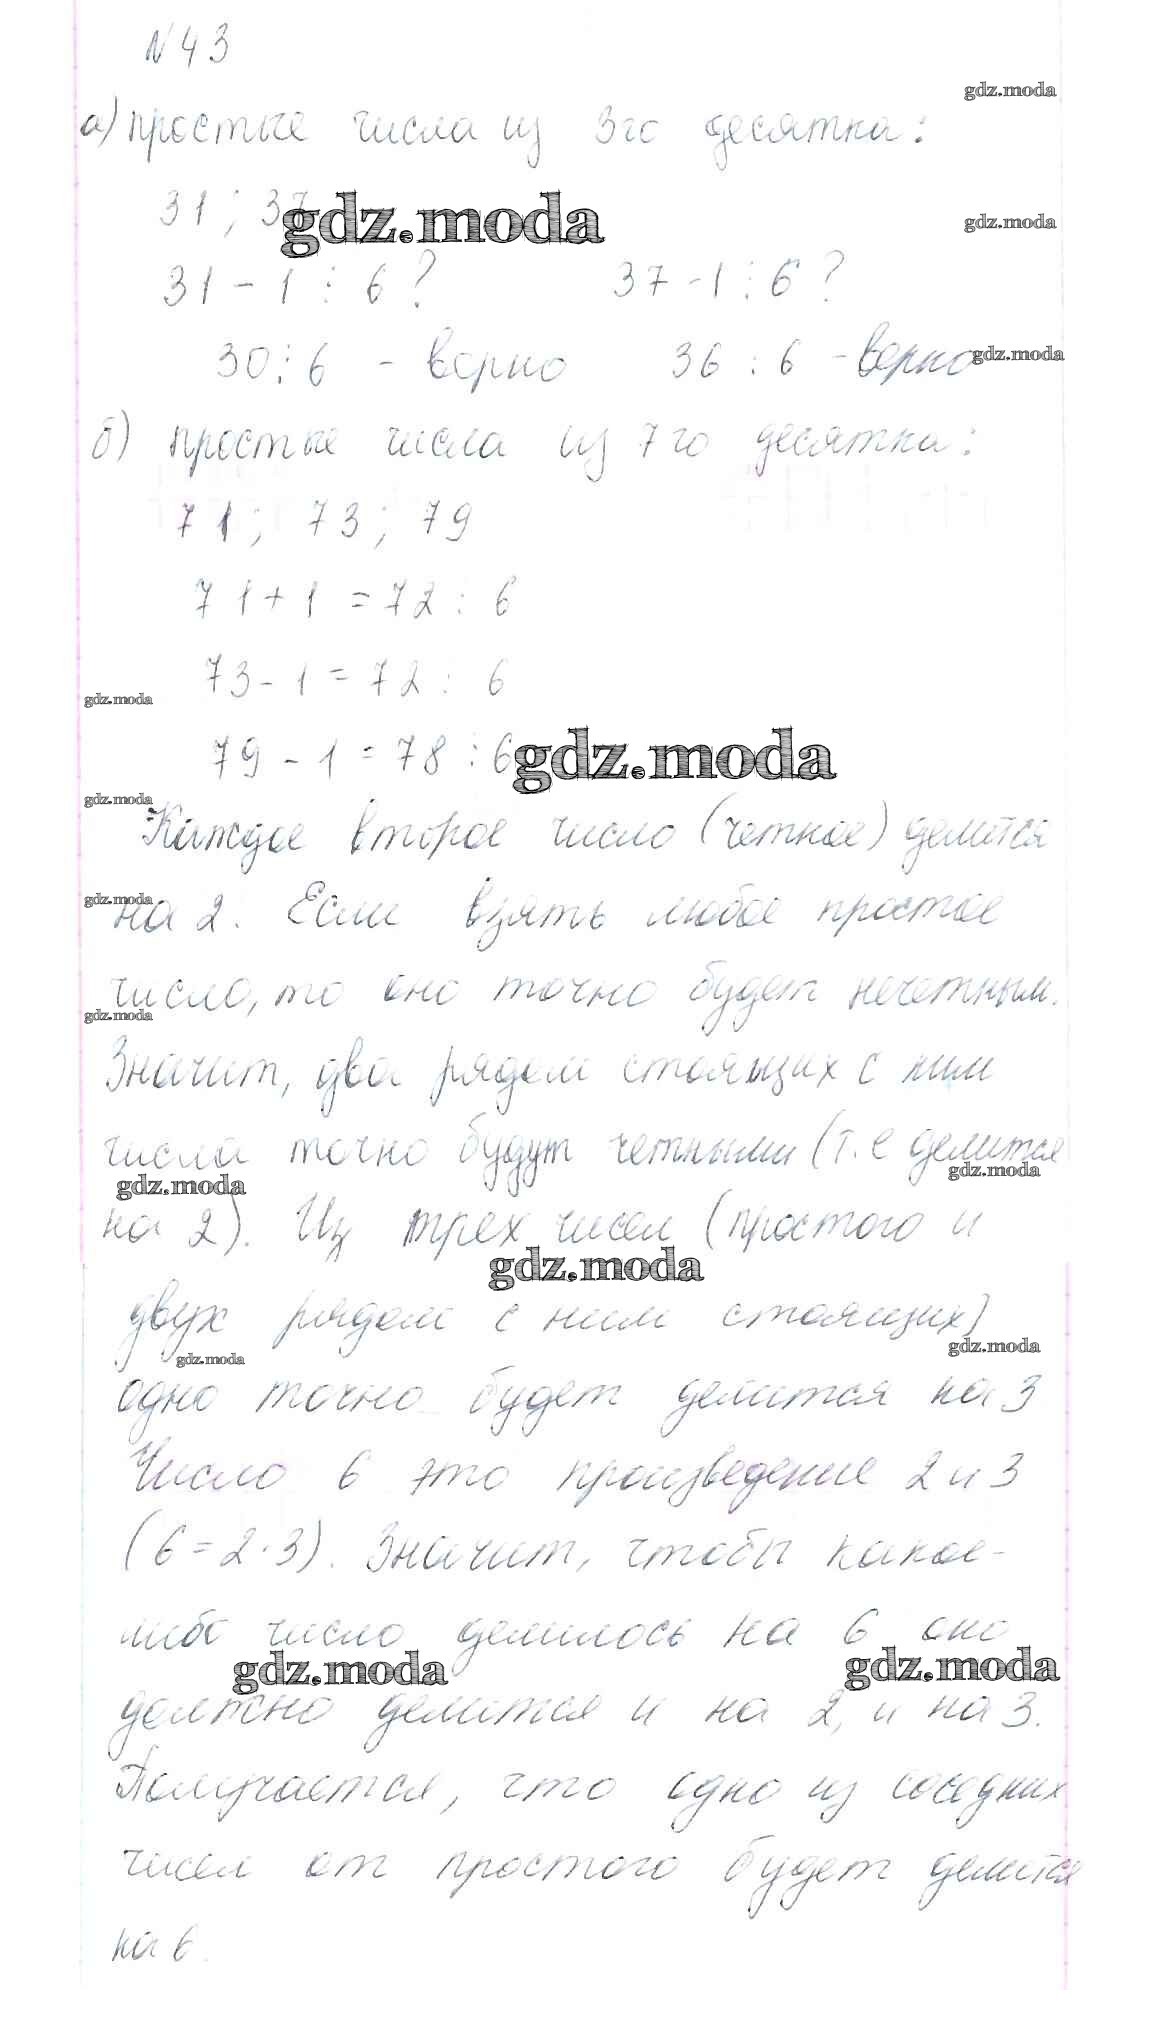 №43
gdz.moda
а) простые числа из 3го десятка:
31; 37
gdz.moda
gdz.moda
31-1 ⋮ 6? 37-1 ⋮ 6?
30 ⋮ 6 - верно 36 : 6 - верно
gdz.moda
б) простые числа из 7го десятка:
71; 73; 79
71+1 = 72 : 6
73-1 = 72 : 6
gdz.moda
79-1 = 78 ⋮ 6
gdz.moda
gdz.moda
Каждое второе число (четное) делится
gdz.moda
на 2. Если взять любое простое
число, то оно точно будет нечетным.
gdz.moda
Значит, два рядом стоящих с ним
числа точно будут четными (т.е делится
gdz.moda
gdz.moda
на 2). Из трех чисел (простого и
gdz.moda
двух рядом с ним стоящих)
gdz.moda
gdz.moda
одно точно будет делится на 3
Число 6 это произведение 2 и 3
(6=2·3). Значит, чтобы какое-
либо число делилось на 6 оно
gdz.moda
gdz.moda
должно делится и на 2, и на 3.
Получается, что одно из соседних
чисел от простого будет делится
на 6.